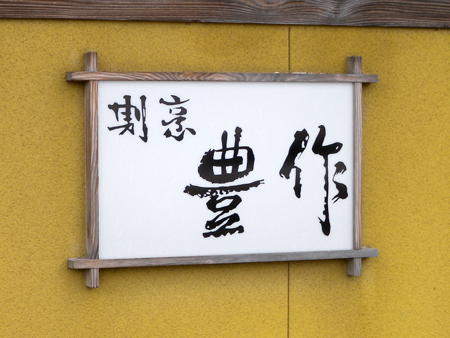 割烹
豊作